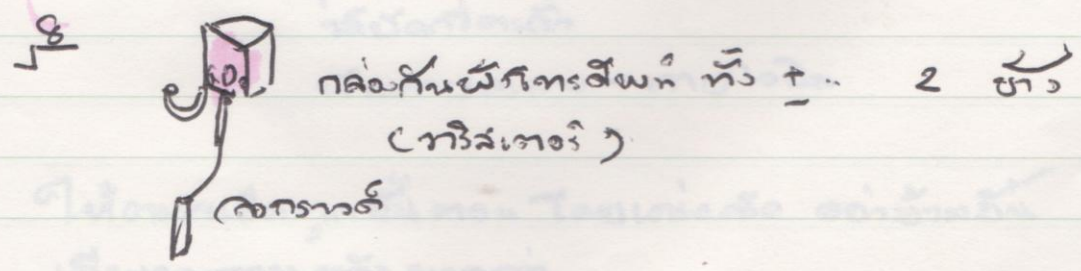 8
กล่องกันฟ้าโทรศัพท์ ทั้ง ± 2 ข้าง
(วาริสเตอร์)
ลงกราวด์